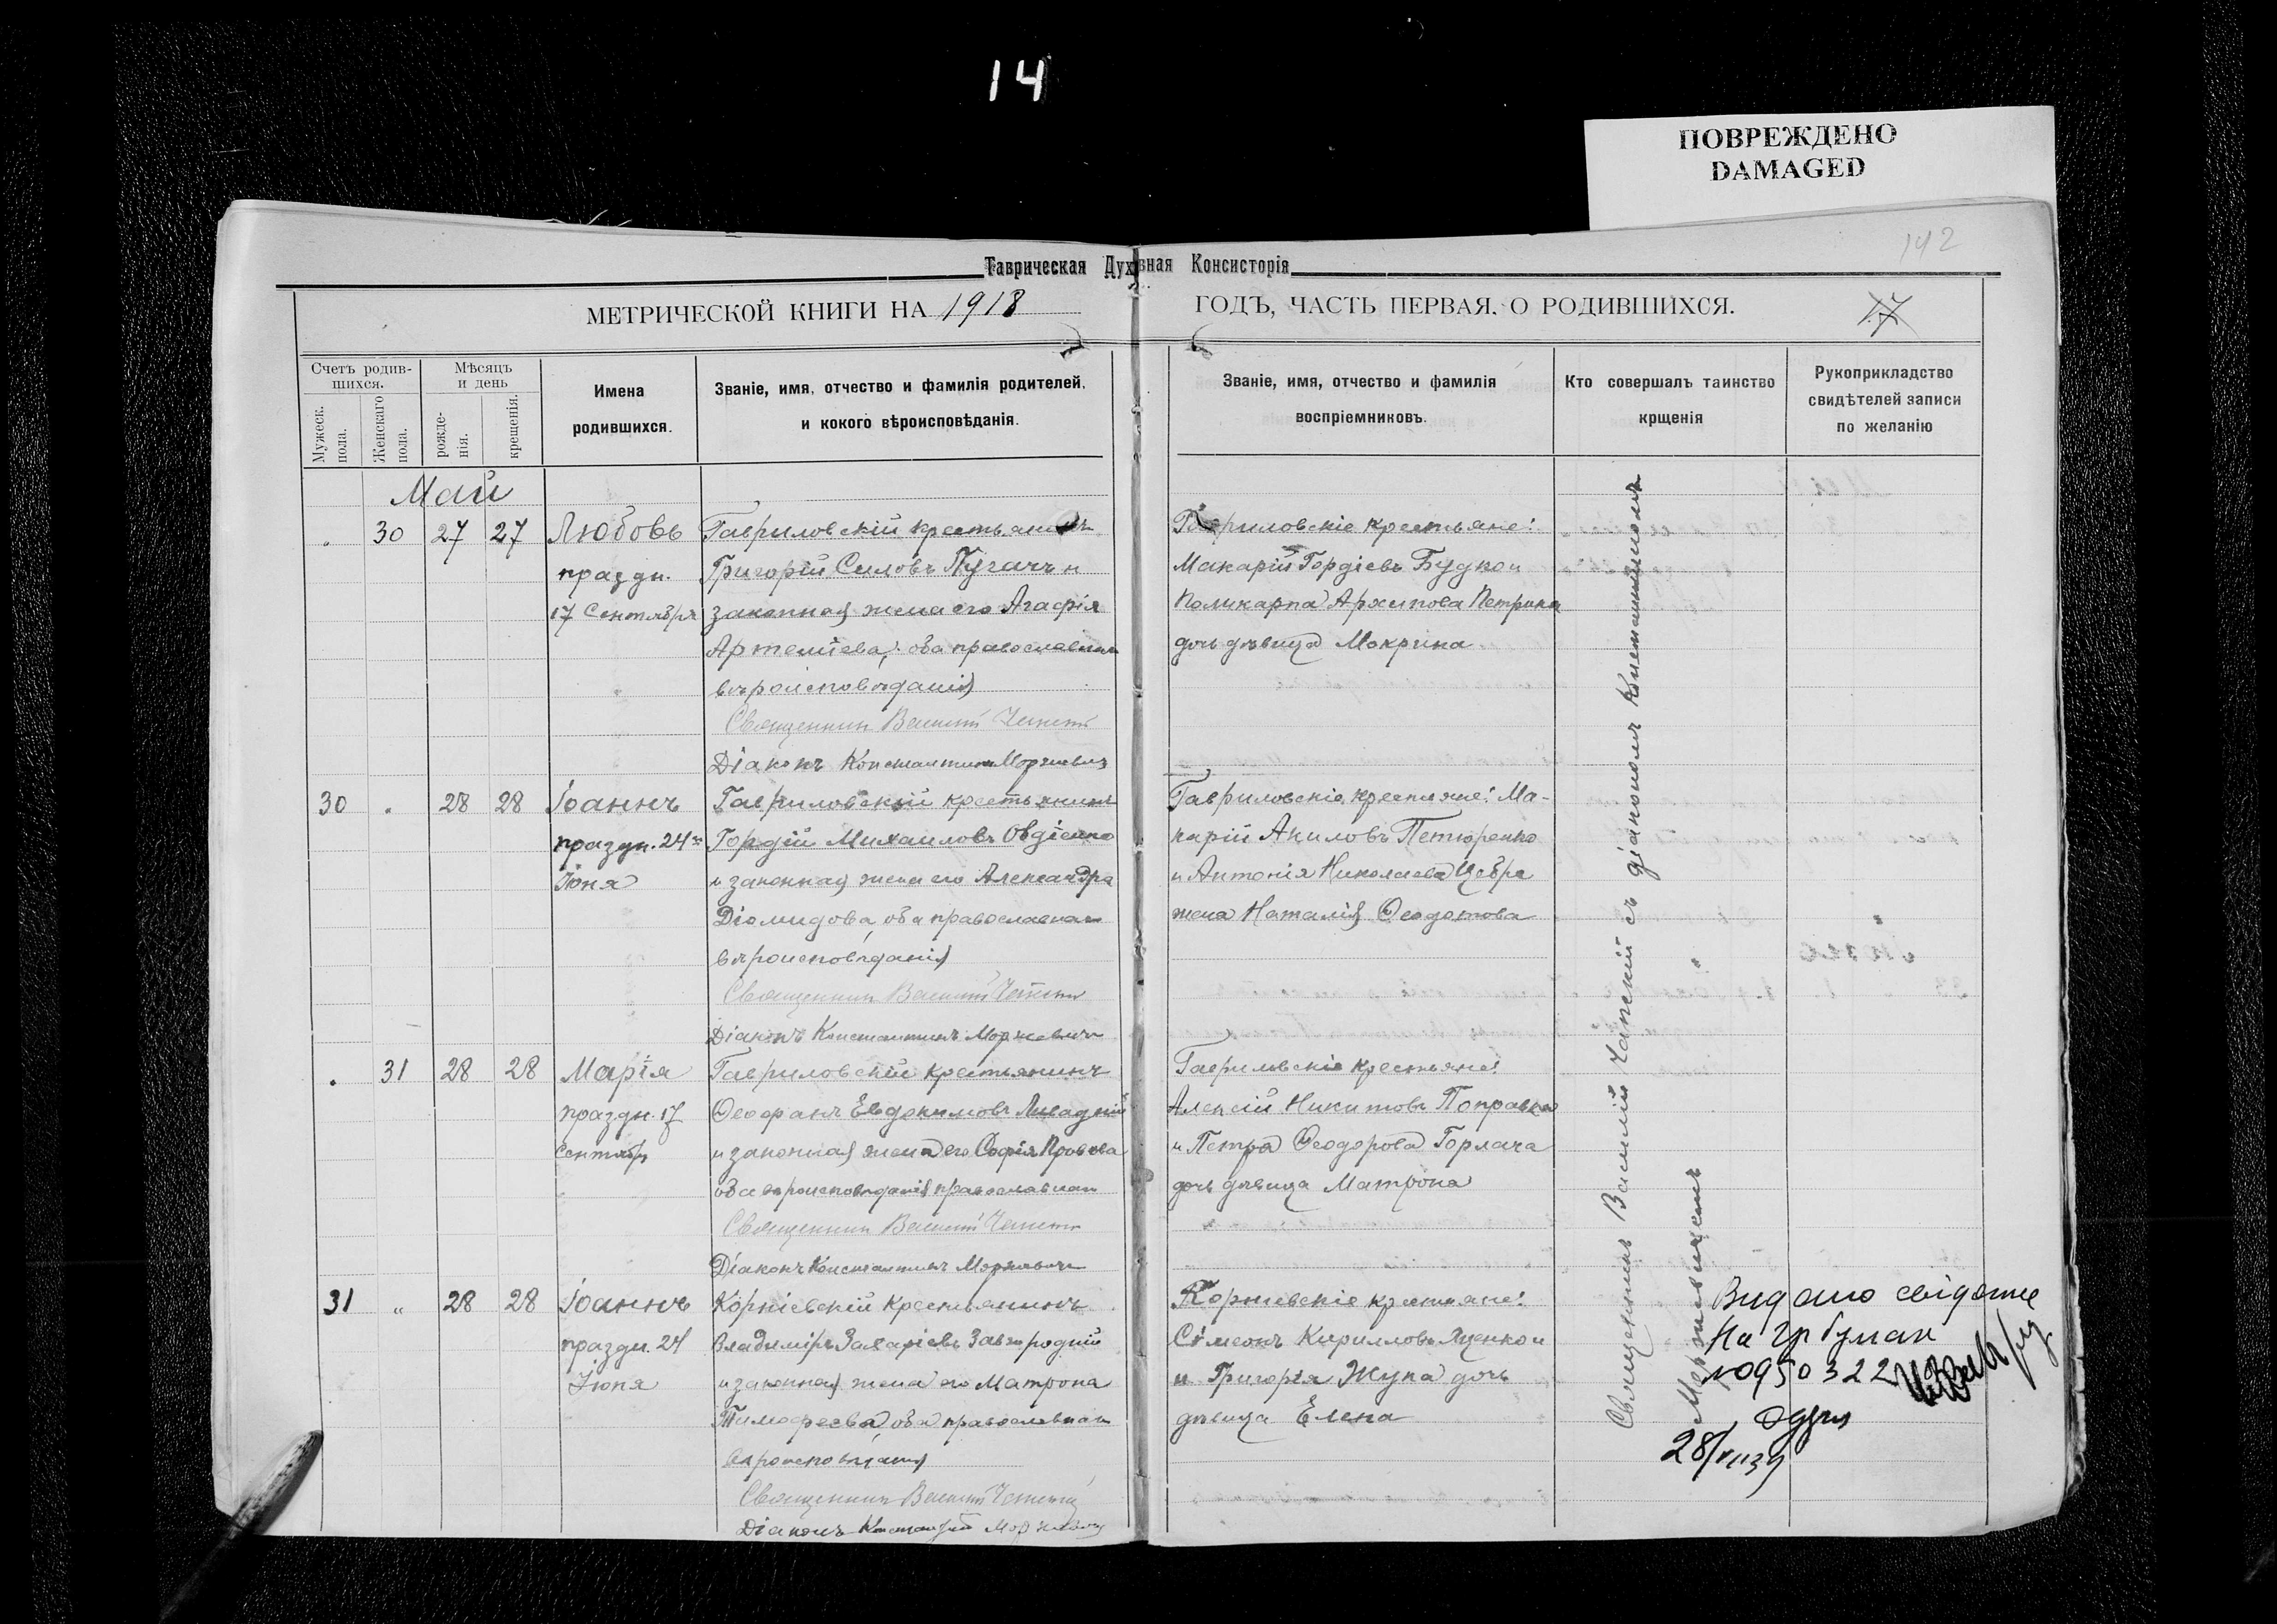 14
ПОВРЕЖДЕНО
DAMAGED
142
Таврическая Духовная Консисторія
МЕТРИЧЕСКОЙ КНИГИ НА 1918 ГОДЪ, ЧАСТЬ ПЕРВАЯ, О РОДИВШИХСЯ.
17
Счетъ родив-
шихся.
Мужеск.
пола.
Женскаго
пола.
Мѣсяцъ
и день
рожде-
нія.
крещенія.
Имена
родившихся.
Званіе, имя, отчество и фамилія родителей,
и кокого вѣроисповѣданія.
Званіе, имя, отчество и фамилія
воспріемниковъ.
Кто совершалъ таинство
крщенія
Рукоприкладство
свидѣтелей записи
по желанію
Май
30 27 27 Любовь
праздн.
17 Сентября
Гавриловскій крестьянинъ
Григорій Силовъ Пугачъ и
законная жена его Агафія
Артеміева, оба православнаго
вѣроисповѣданія
Священникъ Василій
Діаконъ Константинъ Моржевич
Гавриловскіе крестьяне:
Макарій Гордіевъ Будко и
Поликарпа Архипова Петрика
дочь дѣвица Мокрина
30 28 28 Іоаннъ
праздн. 24го
Іюня
Гавриловскій крестьянинъ
Гордій Михаиловъ Овдіенко
и законная жена его Александра
Діомидова, оба православнаго
вѣроисповѣданія
Священникъ Василій
Діаконъ Константинъ Моржевич
Гавриловскіе крестьяне: Ма-
карій Акиловъ Петюренко
и Антонія Николаева Цебра
жена Наталія Ѳеодотова
31 28 28 Марія
праздн. 17
Сентябр
Гавриловскій крестьянинъ
Ѳеофанъ Евдокимовъ Ливадній
и законная жена его Софія Провова
оба вѣроисповѣданія православнаго
Священникъ Василій
Діаконъ Константинъ Моржевич
Гавриловскіе крестьяне:
Алексій Никитовъ Поправка
и Петра Ѳеодорова Горлача
дочь дѣвица Матрона
31 „ 28 28 Іоаннъ
праздн. 24
Іюня
Корніевскій крестьянинъ
Владиміръ Захаріевъ Завгородній
и законная жена его Матрона
Тимофеева, оба православнаго
вѣроисповѣданія
Священникъ Василій
Діаконъ Константинъ
Корніевскіе крестьяне:
Сѵмеонъ Кирилловъ Яценко и
и Григорія Жука дочь
дѣвица Елена
Священникъ Василій Чапскій съ діакономъ Константиномъ
Моржевичемъ
Видано свідоцтво
На
№0950322
28/VII39